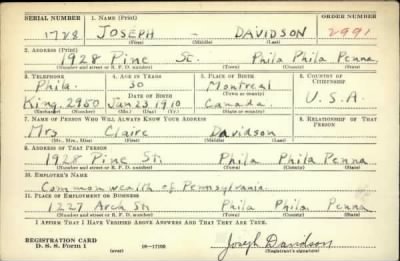 SERIAL NUMBER 1. NAME (Print) ORDER NUMBER
1728 JOSEPH - DAVIDSON 2991
(First) (Middle) (Last)
2. ADDRESS (Print)
1928 Pine St. Phila Phila Penna
(Number and street or R. F. D. number) (Town) (County) (State)
3. TELEPHONE 4. AGE IN YEARS 5. PLACE OF BIRTH 6. COUNTRY OF CITIZENSHIP
Phila. 30 Montreal
DATE OF BIRTH
King. 2950 Jan 23 1910 Canada. U.S.A.
(Exchange) (Number) (Mo.) (Day) (Yr.) (State or country)
7. NAME OF PERSON WHO WILL ALWAYS KNOW YOUR ADDRESS 8. RELATIONSHIP OF THAT PERSON
Mrs Claire Davidson
(Mr., Mrs., Miss) (First) (Middle) (Last)
9. ADDRESS OF THAT PERSON
1928 Pine St. Phila Phila Penna
(Number and street or R. F. D. number) (Town) (County) (State)
10. EMPLOYER'S NAME
Commonwealth of Pennsylvania
11. PLACE OF EMPLOYMENT OR BUSINESS
1227 Arch St. Phila Phila Penna
(Number and street or R. F. D. number) (Town) (County) (State)
I AFFIRM THAT I HAVE VERIFIED ABOVE ANSWERS AND THAT THEY ARE TRUE.
REGISTRATION CARD
D. S. S. Form 1 (over) 16-17105 Joseph Davidson
(Registrant's signature)